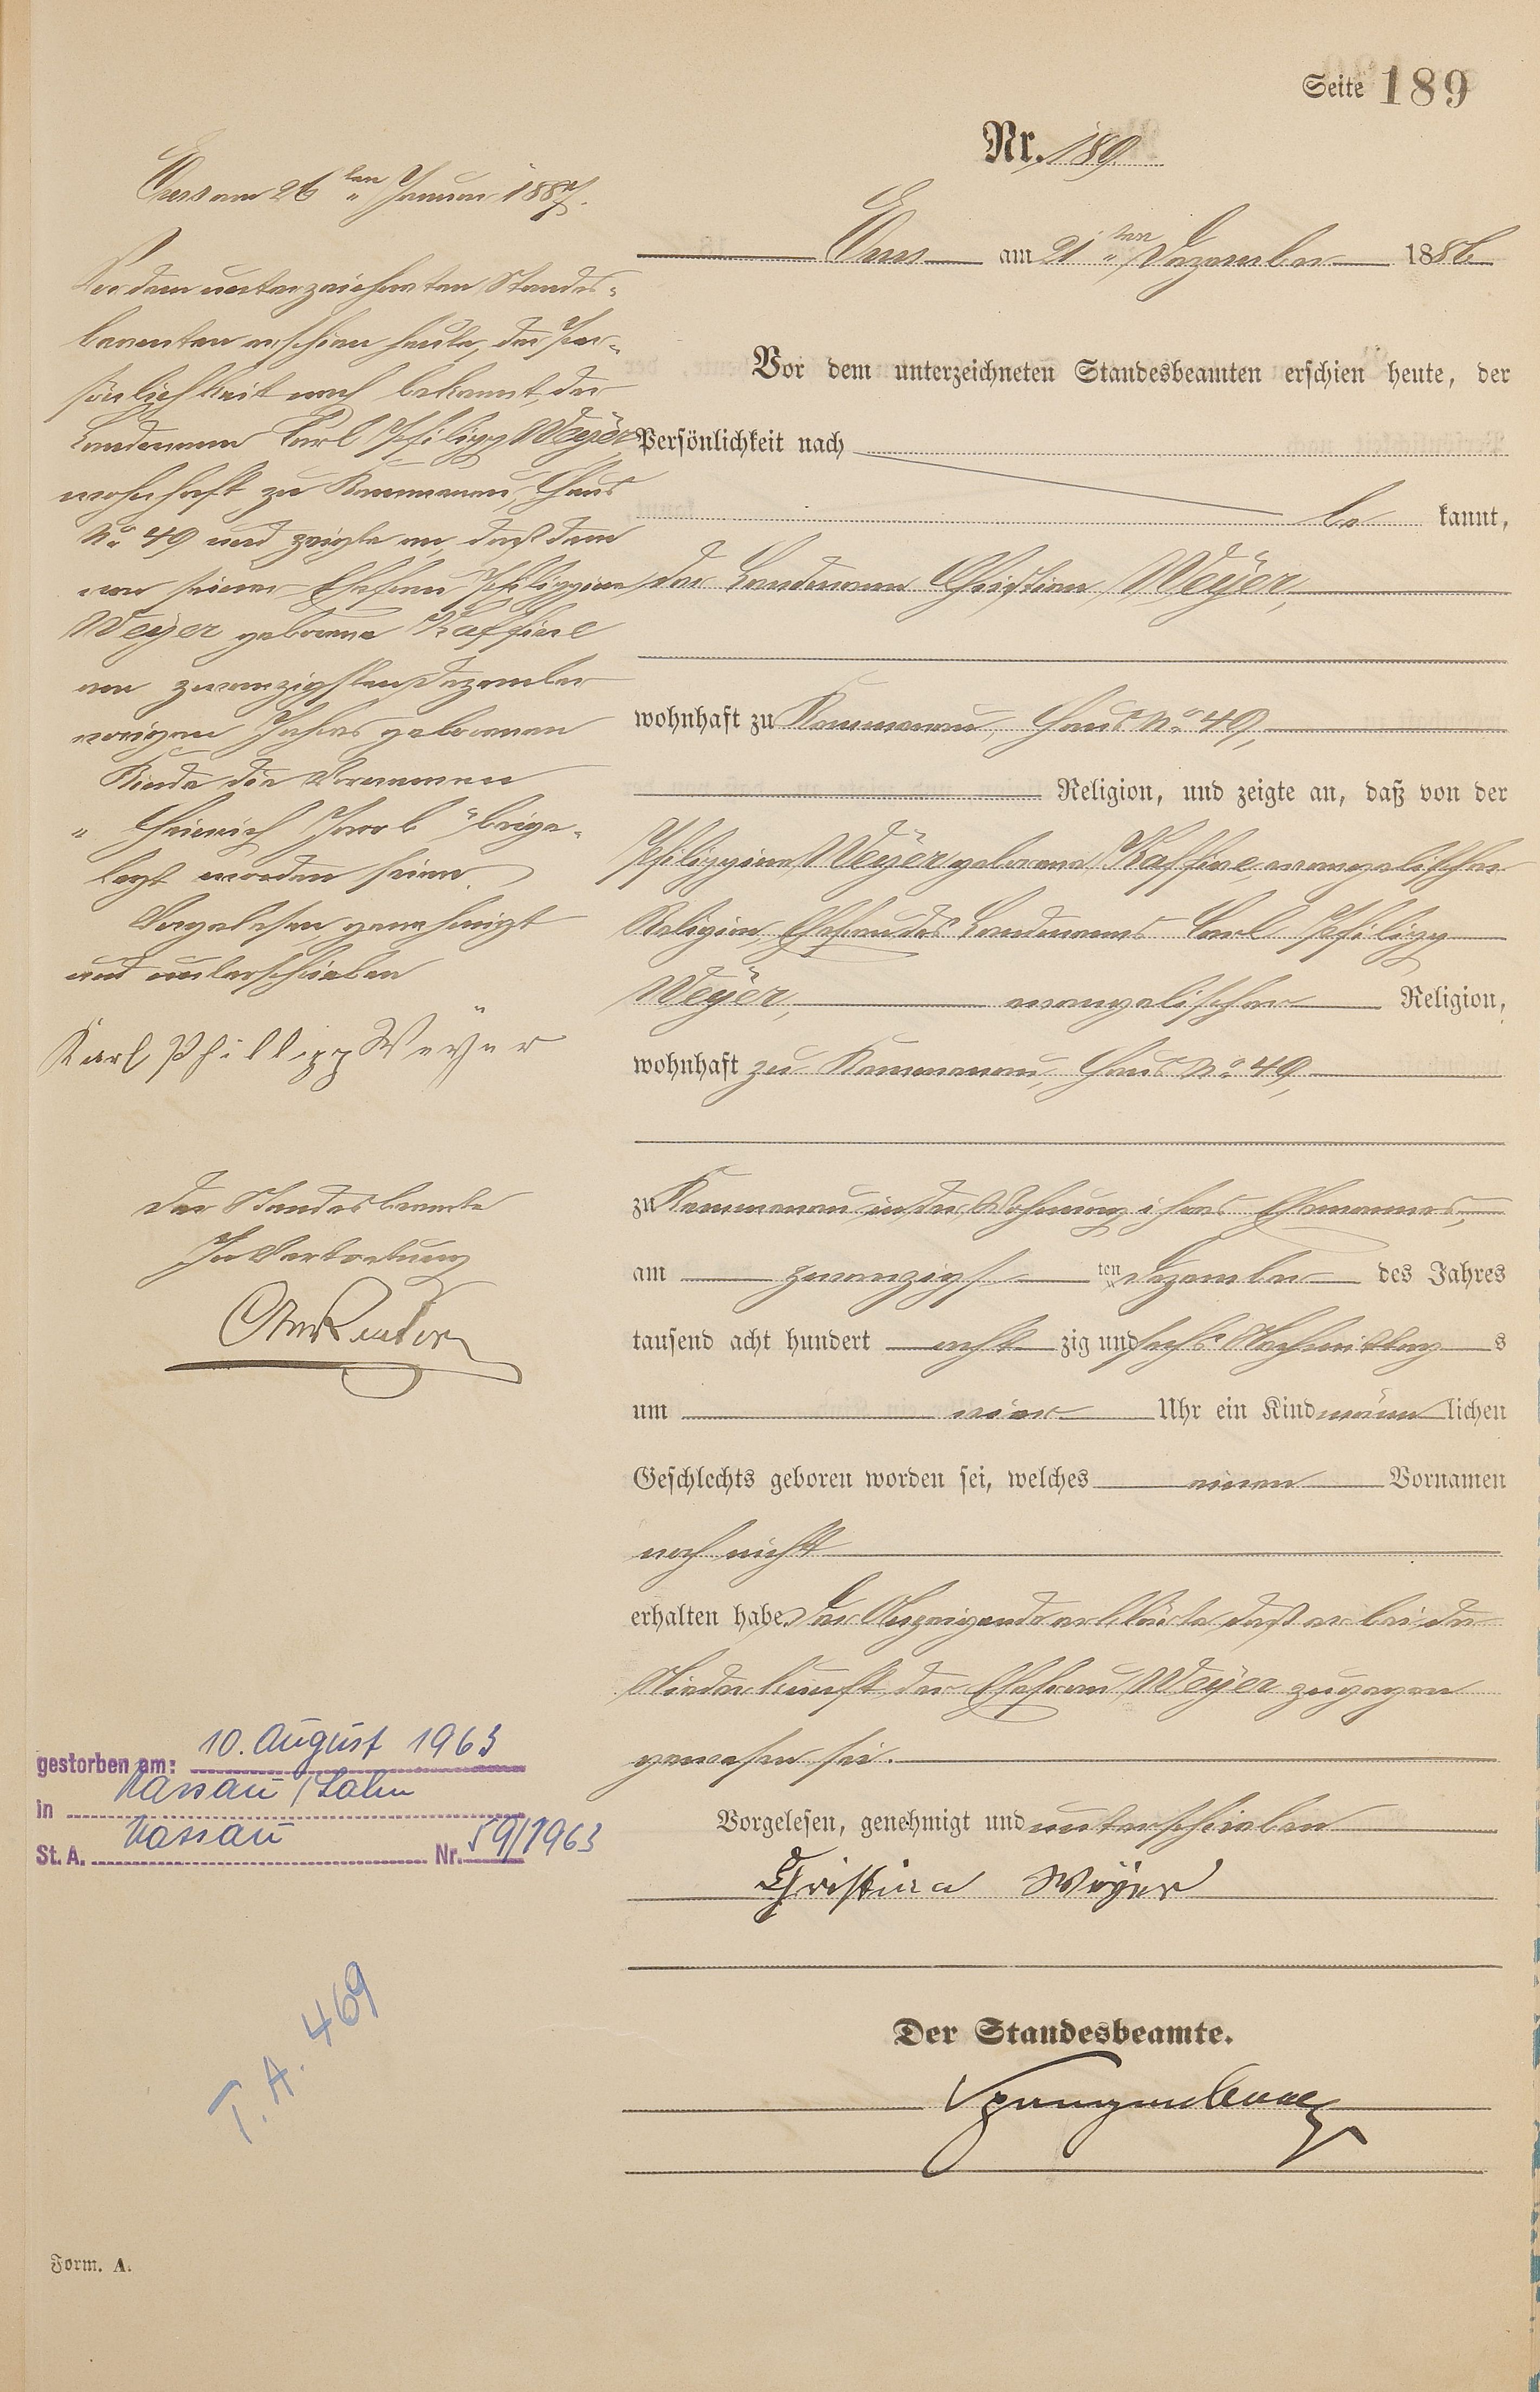 Seite 189
Nr. 189
Ems am 21ten Dezember 1886
Vor dem unterzeichneten Standesbeamten erschien heute, der
Persönlichkeit nach
be kannt,
der Landmann Christian Weyer,
wohnhaft zu Kemmenau, Haus No 49,
Religion, und zeigte an, daß von der
Philippine Weyer geborene Kaffine, evangelischer
Religion, Ehefrau des Landmanns Carl Philipp
Weyer, evangelischer Religion,
wohnhaft zu Kemmenau, Haus No 49,
zu Kemmenau in der Wohnung ihres Ehemannes,
am zwanzigsten Dezember des Jahres
tausend acht hundert acht zig und sechs Nachmittags
um vier Uhr ein Kind männlichen
Geschlechts geboren worden sei, welches einen Vornamen
noch nicht
erhalten habe. Der Anzeigende erklärte, daß er bei der
Niederkunft der Ehefrau Weyer zugegen
gewesen sei.
Vorgelesen, genehmigt und unterschrieben
Christian Weyer
Der Standesbeamte.
Ems am 26ten Januar 1887.
Vor dem unterzeichneten Standes-
beamten erschien heute, der Per-
sönlichkeit nach bekannt, der
Landmann Carl Philipp Weyer
wohnhaft zu Kemmenau, Haus
No 49 und zeigte an, daß dem
von seiner Ehefrau Philippine
Weyer geborene Kaffine
am zwanzigsten Dezember
vorigen Jahres geborenen
Kinde die Vornamen
"Heinrich Jacob" beige-
legt worden seien
Vorgelesen, genehmigt
und unterschrieben
Karl Phillipp Weyer
Der Standesbeamte
In Vertretung
gestorben am: 10. August 1963
in Nassau / Lahn
St. A. Nassau Nr. 59/1963
T. A. 469
Form. A.